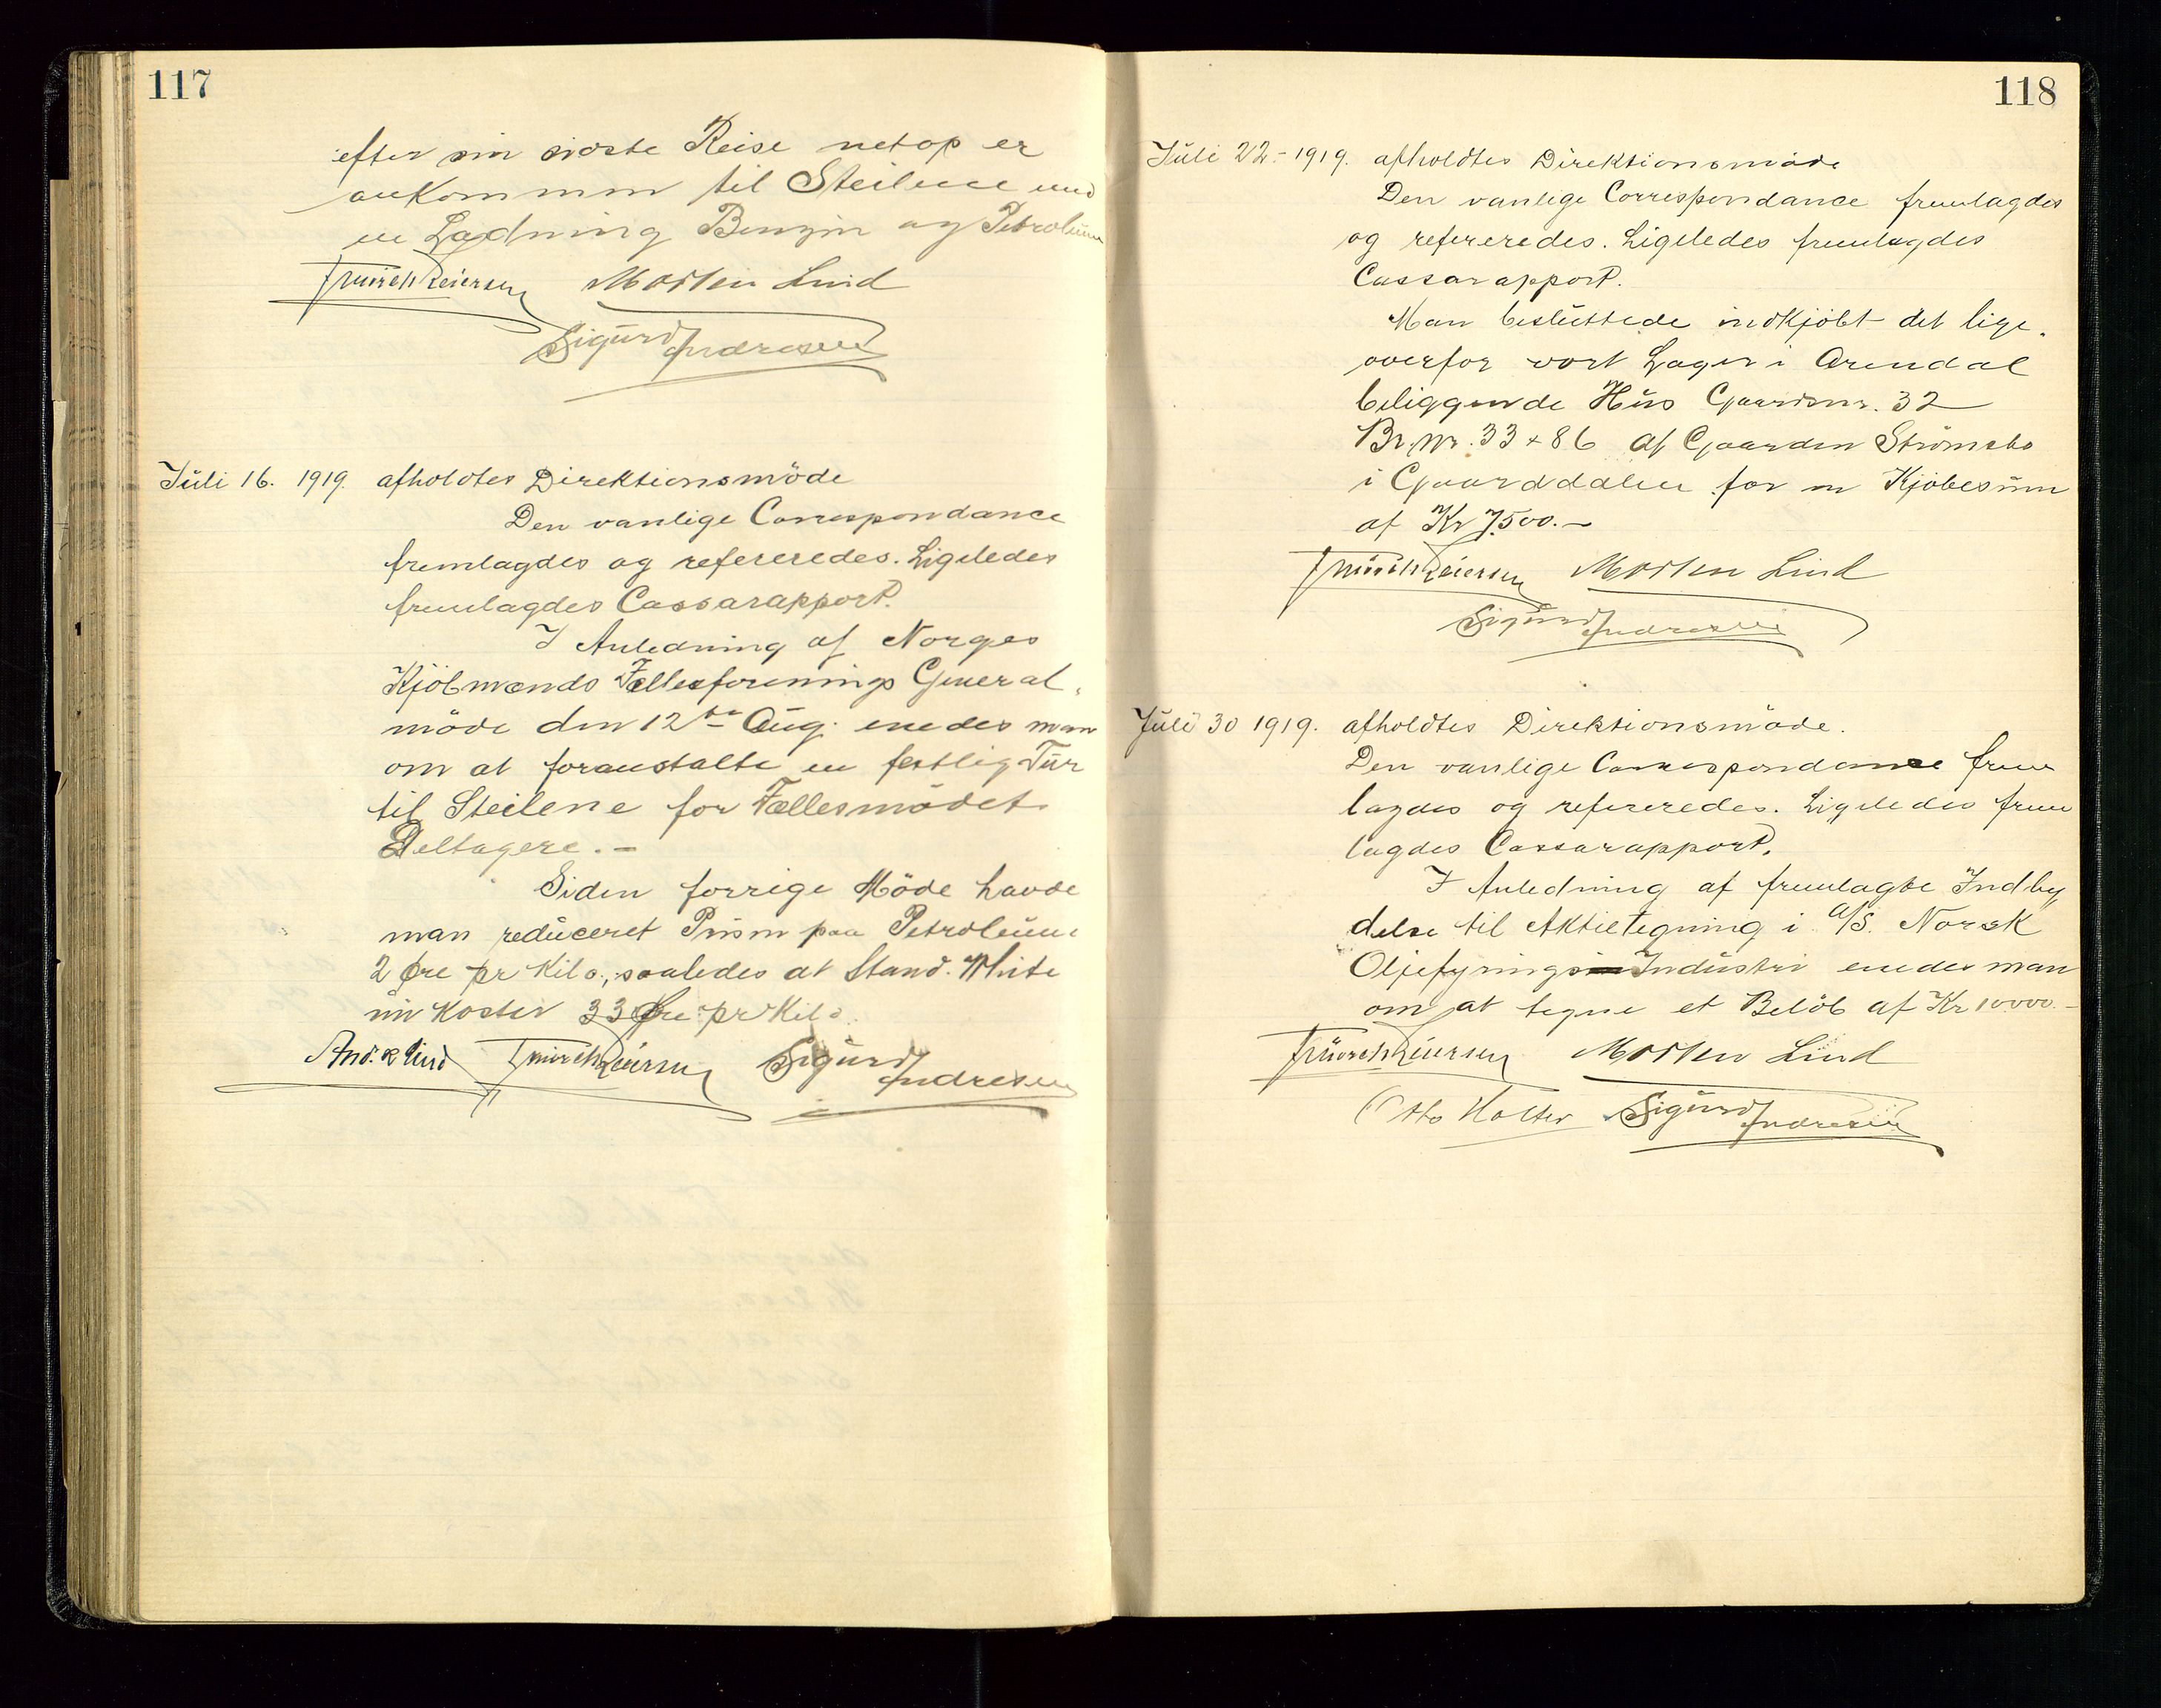 117
efter sin sidste Reise netop er
ankommen til Steilene med
en Ladning Benzin og Petroleum
Mørch Reiersen Morten Lind
Sigurd Andresen
Juli 16. 1919. afholdtes Direktionsmöde
Den vanlige Correspondance
fremlagdes og refereredes. Ligeledes
fremlagdes Cassarapport.
I Anledning af Norges
Kjöbmænds Fællesforenings General-
möde den 12te Aug. enedes man
om at foranstalte en festlig Tur
til Steilene for Fællesmödets
Deltagere. -
Siden forrige Möde havde
man reduceret Prisen paa Petroleum
2 Øre pr Kilo, saaledes at Stand. White
nu koster 33 Øre pr Kilo.
And. K Lind Mørch Reiersen Sigurd
Andresen
118
Juli 22.- 1919. afholdtes Direktionsmöde
Den vanlige Correspondance fremlagdes
og refereredes. Ligeledes fremlagdes
Cassarapport.
Man besluttede indkjöbt det lige-
overfor vort Lager i Arendal
beliggende Hus Gaardsnr. 32
Br. nr. 33 + 86 af Gaarden Strömsbo
i Gaarddalen for en Kjöbesum
af Kr 7500.-
Mørch Reiersen Morten Lind
Sigurd Andresen
Juli 30 1919. afholdtes Direktionsmöde.
Den vanlige Correspondance frem
lagdes og refereredes. Ligeledes frem
lagdes Cassarapport.
I Anledning af fremlagte Indby
delse til Aktietegning i A/S. Norsk
Oljefyrings Industri enedes man
om at tegne et Belöb af Kr 10000.-
Mørch Reiersen Morten Lind
Otto Holter Sigurd Andresen